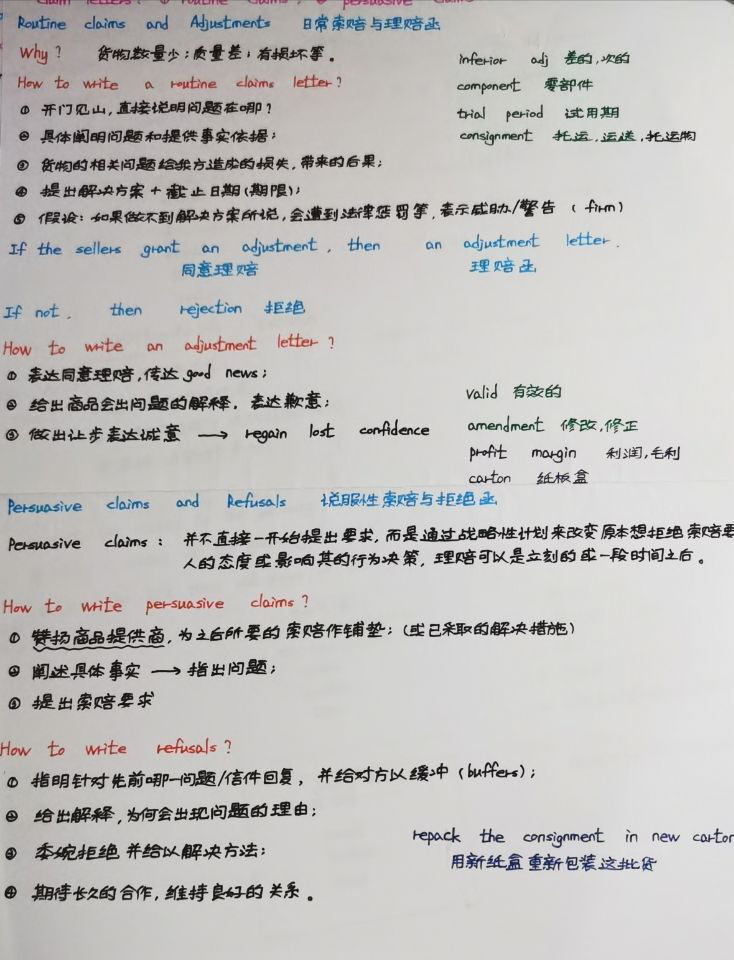 claim letters: ① routine claims; ② persuasive claims
Routine claims and Adjustments 日常索赔与理赔函
Why? 货物数量少;质量差;有损坏等。
inferior adj 差的,次的
How to write a routine claims letter?
component 零部件
① 开门见山,直接说明问题在哪?
trial period 试用期
② 具体阐明问题和提供事实依据;
consignment 托运,运送,托运物
③ 货物的相关问题给我方造成的损失,带来的后果;
④ 提出解决方案 + 截止日期(期限);
⑤ 假设:如果做不到解决方案所说,会遭到法律惩罚等,表示威胁/警告 (firm)
If the sellers grant an adjustment, then an adjustment letter.
同意理赔 理赔函
If not, then rejection 拒绝
How to write an adjustment letter?
① 表达同意理赔,传达good news;
② 给出商品会出问题的解释,表达歉意;
valid 有效的
③ 做出让步表达诚意 → regain lost confidence
amendment 修改,修正
profit margin 利润,毛利
carton 纸板盒
Persuasive claims and Refusals 说服性索赔与拒绝函
Persuasive claims: 并不直接一开始提出要求,而是通过战略性计划来改变原本想拒绝索赔要
人的态度或影响其的行为决策,理赔可以是立刻的或一段时间之后。
How to write persuasive claims?
① 赞扬商品提供商,为之后所要的索赔作铺垫;(或已采取的解决措施)
② 阐述具体事实 → 指出问题;
③ 提出索赔要求
How to write refusals?
① 指明针对先前哪一问题/信件回复,并给对方以缓冲(buffers);
② 给出解释,为何会出现问题的理由;
③ 委婉拒绝并给以解决方法;
repack the consignment in new carton
用新纸盒重新包装这批货
④ 期待长久的合作,维持良好的关系。